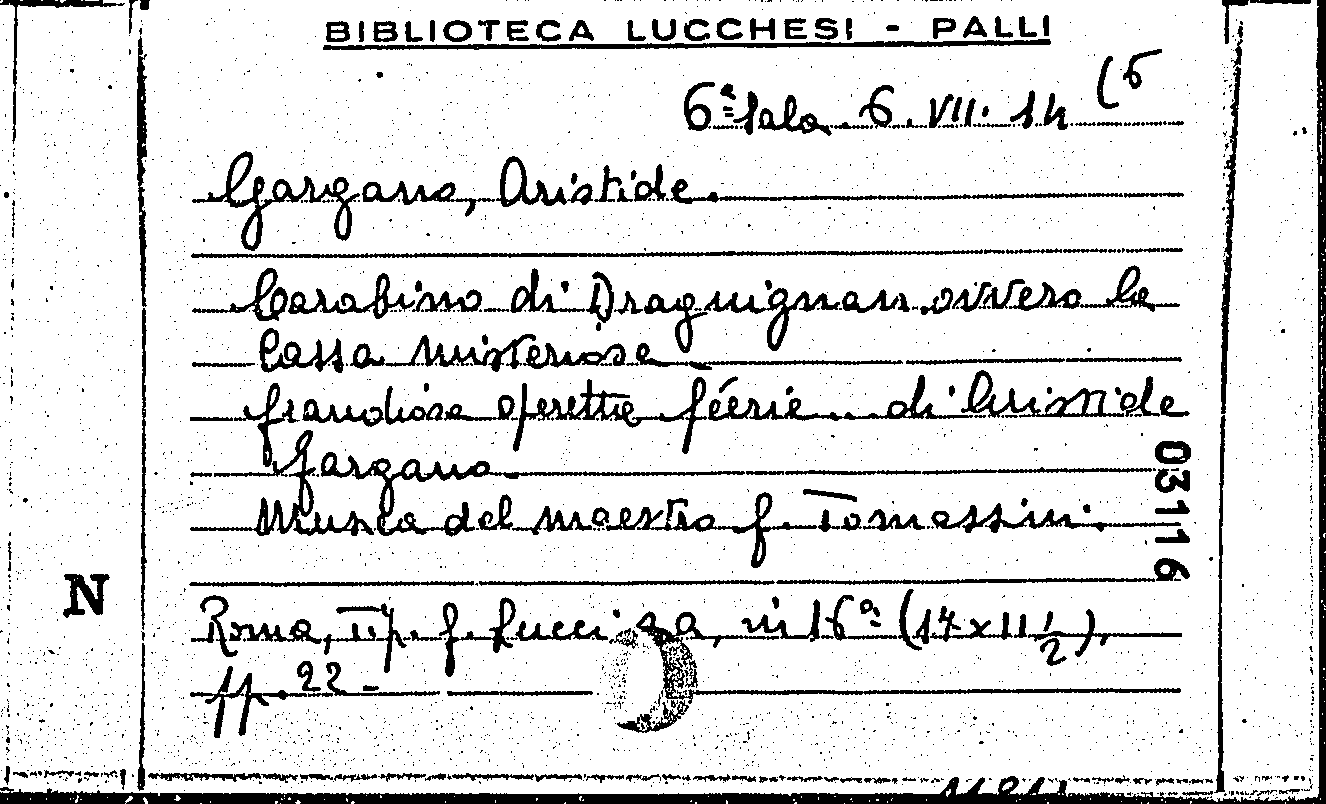 BIBLIOTECA LUCCHESI - PALLI
6ª Sala. 6. VII. 14 (5
Gargano, Aristide.
Carabino di Draguignan ovvero la
Cassa misteriosa
grandiosa operetta féerie... di Aristide
Gargano.
Musica del maestro G. Tomassini.
03116
N
Roma, Tip. G. s.a, in 16º (17 x 11 1/2),
pp. 22 -